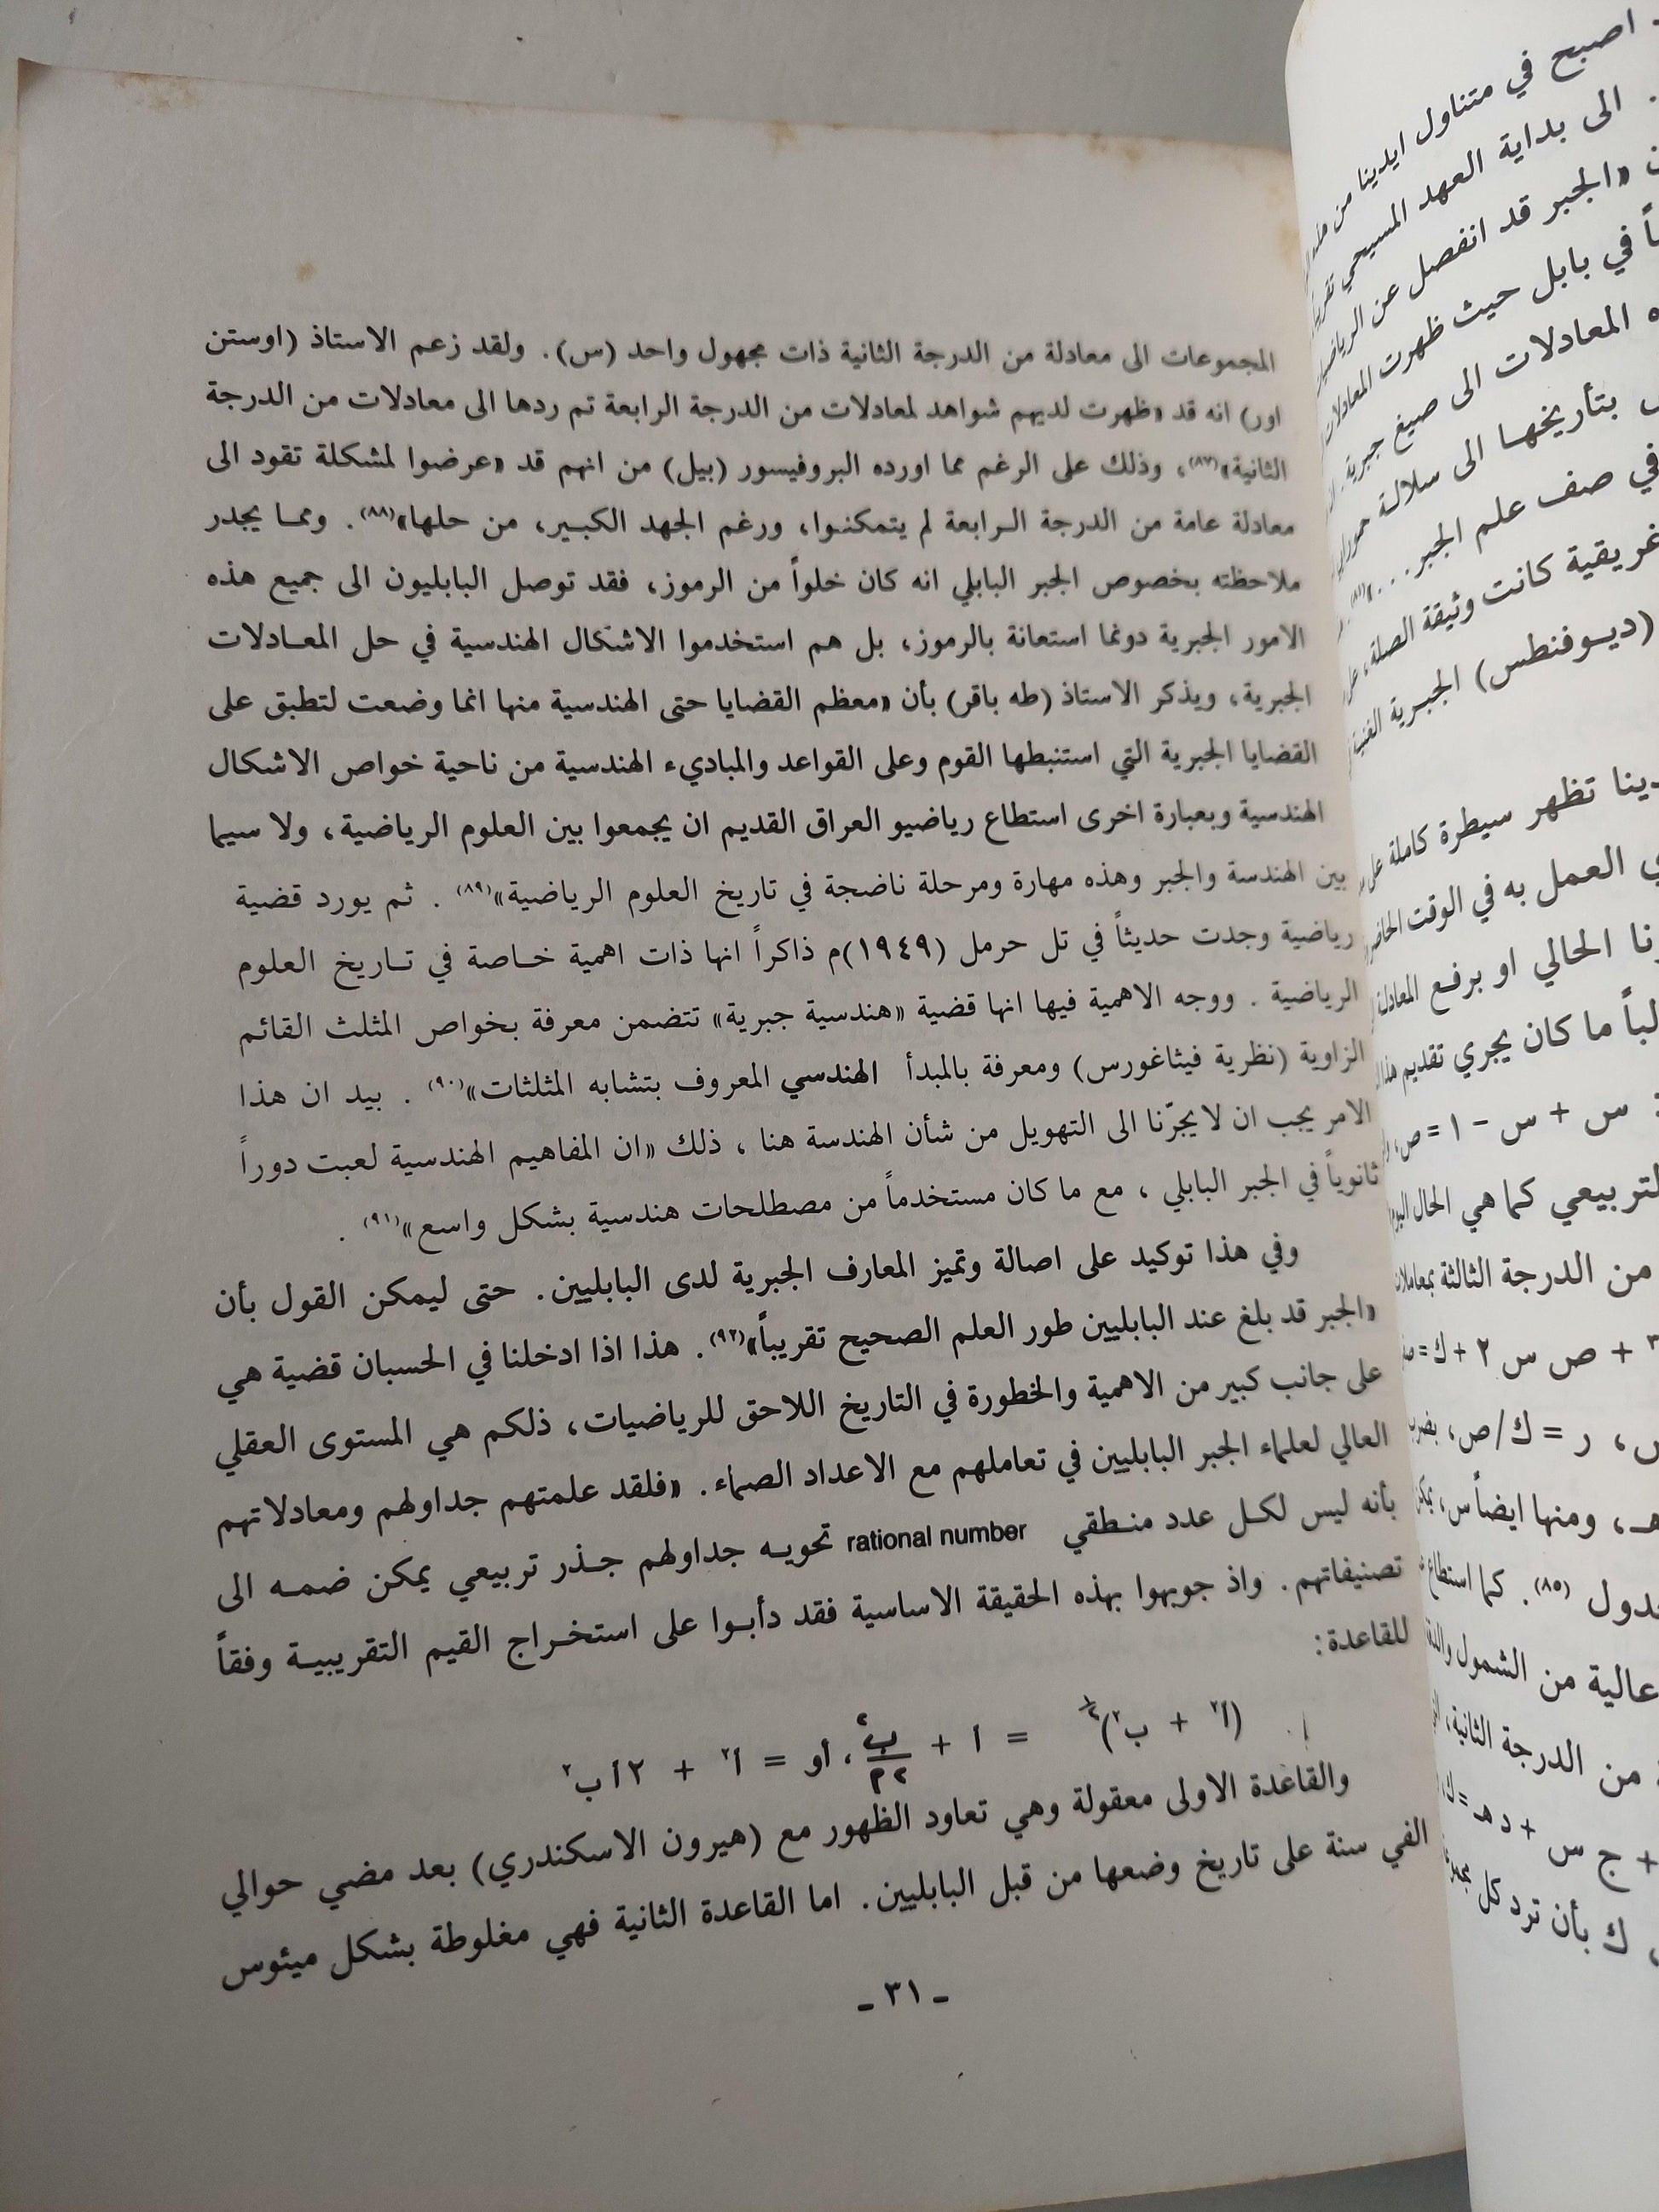 المجموعات الى معادلة من الدرجة الثانية ذات مجهول واحد (س). ولقد زعم الاستاذ (اوستن
اور) انه قد «ظهرت لديهم شواهد لمعادلات من الدرجة الرابعة تم ردها الى معادلات من الدرجة
الثانية»(٨٧)، وذلك على الرغم مما اورده البروفيسور (بيل) من انهم قد «عرضوا لمشكلة تقود الى
معادلة عامة من الدرجة الرابعة لم يتمكنوا، ورغم الجهد الكبير، من حلها»(٨٨). ومما يجدر
ملاحظته بخصوص الجبر البابلي انه كان خلواً من الرموز، فقد توصل البابليون الى جميع هذه
الامور الجبرية دونما استعانة بالرموز، بل هم استخدموا الاشكال الهندسية في حل المعادلات
الجبرية، ويذكر الاستاذ (طه باقر) بأن «معظم القضايا حتى الهندسية منها انما وضعت لتطبق على
القضايا الجبرية التي استنبطها القوم وعلى القواعد والمباديء الهندسية من ناحية خواص الاشكال
الهندسية وبعبارة اخرى استطاع رياضيو العراق القديم ان يجمعوا بين العلوم الرياضية، ولا سيما
بين الهندسة والجبر وهذه مهارة ومرحلة ناضجة في تاريخ العلوم الرياضية»(٨٩). ثم يورد قضية
رياضية وجدت حديثاً في تل حرمل (١٩٤٩)م ذاكراً انها ذات اهمية خاصة في تاريخ العلوم
الرياضية. ووجه الاهمية فيها انها قضية «هندسية جبرية» تتضمن معرفة بخواص المثلث القائم
الزاوية (نظرية فيثاغورس) ومعرفة بالمبدأ الهندسي المعروف بتشابه المثلثات»(٩٠). بيد ان هذا
الامر يجب ان لا يجرّنا الى التهويل من شأن الهندسة هنا، ذلك «ان المفاهيم الهندسية لعبت دوراً
ثانوياً في الجبر البابلي، مع ما كان مستخدماً من مصطلحات هندسية بشكل واسع»(٩١).
وفي هذا توكيد على اصالة وتميز المعارف الجبرية لدى البابليين. حتى ليمكن القول بأن
«الجبر قد بلغ عند البابليين طور العلم الصحيح تقريباً»(٩٢). هذا اذا ادخلنا في الحسبان قضية هي
على جانب كبير من الاهمية والخطورة في التاريخ اللاحق للرياضيات، ذلكم هي المستوى العقلي
العالي لعلماء الجبر البابليين في تعاملهم مع الاعداد الصماء. «فلقد علمتهم جداولهم ومعادلاتهم
بأنه ليس لكل عدد منطقي rational number تحويه جداولهم جذر تربيعي يمكن ضمه الى
تصنيفاتهم. واذ جوبهوا بهذه الحقيقة الاساسية فقد دأبوا على استخراج القيم التقريبية وفقاً
للقاعدة:
(أ٢ + ب٢)١/٢ = أ + ب٢/٢أ، أو = أ٢ + ٢أ ب٢
والقاعدة الاولى معقولة وهي تعاود الظهور مع (هيرون الاسكندري) بعد مضي حوالي
الفي سنة على تاريخ وضعها من قبل البابليين. اما القاعدة الثانية فهي مغلوطة بشكل ميئوس
ـ ٣١ ـ
اصبح في متناول ايدينا من
الى بداية العهد المسيحي
«الجبر قد انفصل عن
في بابل حيث ظهرت المعادلات
المعادلات الى صيغ جبرية
بتأريخها الى سلالة
في صف علم الجبر...»
كانت وثيقة الصلة
(ديوفنطس) الجبرية
تظهر سيطرة كاملة
العمل به في الوقت
الحالي او برفع المعادلة
ما كان يجري تقديم
س + س - ١ = ص
كما هي الحال
من الدرجة الثالثة
+ ص س ٢ + ك =
ر = ك/ص،
ومنها ايضاً س،
(٨٥). كما استطاع
عالية من الشمول
من الدرجة الثانية،
+ ج س + د هـ = ك
ك بأن ترد كل